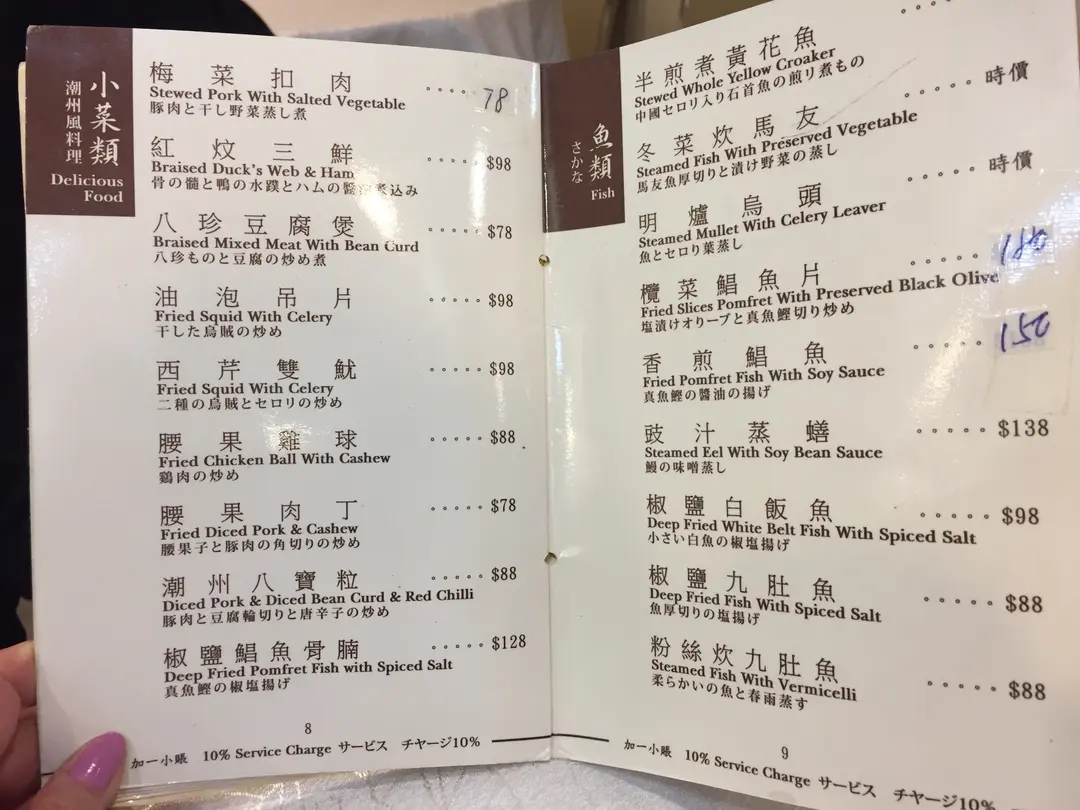 小菜類
潮州風料理
Delicious
Food
梅菜扣肉 78
Stewed Pork With Salted Vegetable
豚肉と干し野菜蒸し煮
紅炆三鮮 $98
Braised Duck's Web & Ham
骨の髄と鴨の水蹼とハムの醬 煮込み
八珍豆腐煲 $78
Braised Mixed Meat With Bean Curd
八珍ものと豆腐の炒め煮
油泡吊片 $98
Fried Squid With Celery
干した烏賊の炒め
西芹雙魷 $98
Fried Squid With Celery
二種の烏賊とセロリの炒め
腰果雞球 $88
Fried Chicken Ball With Cashew
鶏肉の炒め
腰果肉丁 $78
Fried Diced Pork & Cashew
腰果子と豚肉の角切りの炒め
潮州八寶粒 $88
Diced Pork & Diced Bean Curd & Red Chilli
豚肉と豆腐輪切りと唐辛子の炒め
椒鹽鯧魚骨腩 $128
Deep Fried Pomfret Fish with Spiced Salt
真魚鰹の椒塩揚げ
8
加一小賬 10% Service Charge サービス チヤージ10%
魚類
さかな
Fish
半煎煮黃花魚
Stewed Whole Yellow Croaker
中國セロリ入り石首魚の煎リ煮もの
時價
冬菜炊馬友
Steamed Fish With Preserved Vegetable
馬友魚厚切りと漬け野菜の蒸し
時價
明爐烏頭
Steamed Mullet With Celery Leaver
魚とセロり葉蒸し
180
欖菜鯧魚片
Fried Slices Pomfret With Preserved Black Olive
塩漬けオリーブと真魚鰹切り炒め
150
香煎鯧魚
Fried Pomfret Fish With Soy Sauce
真魚鰹の醬油の揚げ
豉汁蒸鱔 $138
Steamed Eel With Soy Bean Sauce
鰻の味噌蒸し
椒鹽白飯魚 $98
Deep Fried White Belt Fish With Spiced Salt
小さい白魚の椒塩揚げ
椒鹽九肚魚 $88
Deep Fried Fish With Spiced Salt
魚厚切りの塩揚げ
粉絲炊九肚魚 $88
Steamed Fish With Vermicelli
柔らかいの魚と春雨蒸す
9
加一小賬 10% Service Charge サービス チヤージ10%